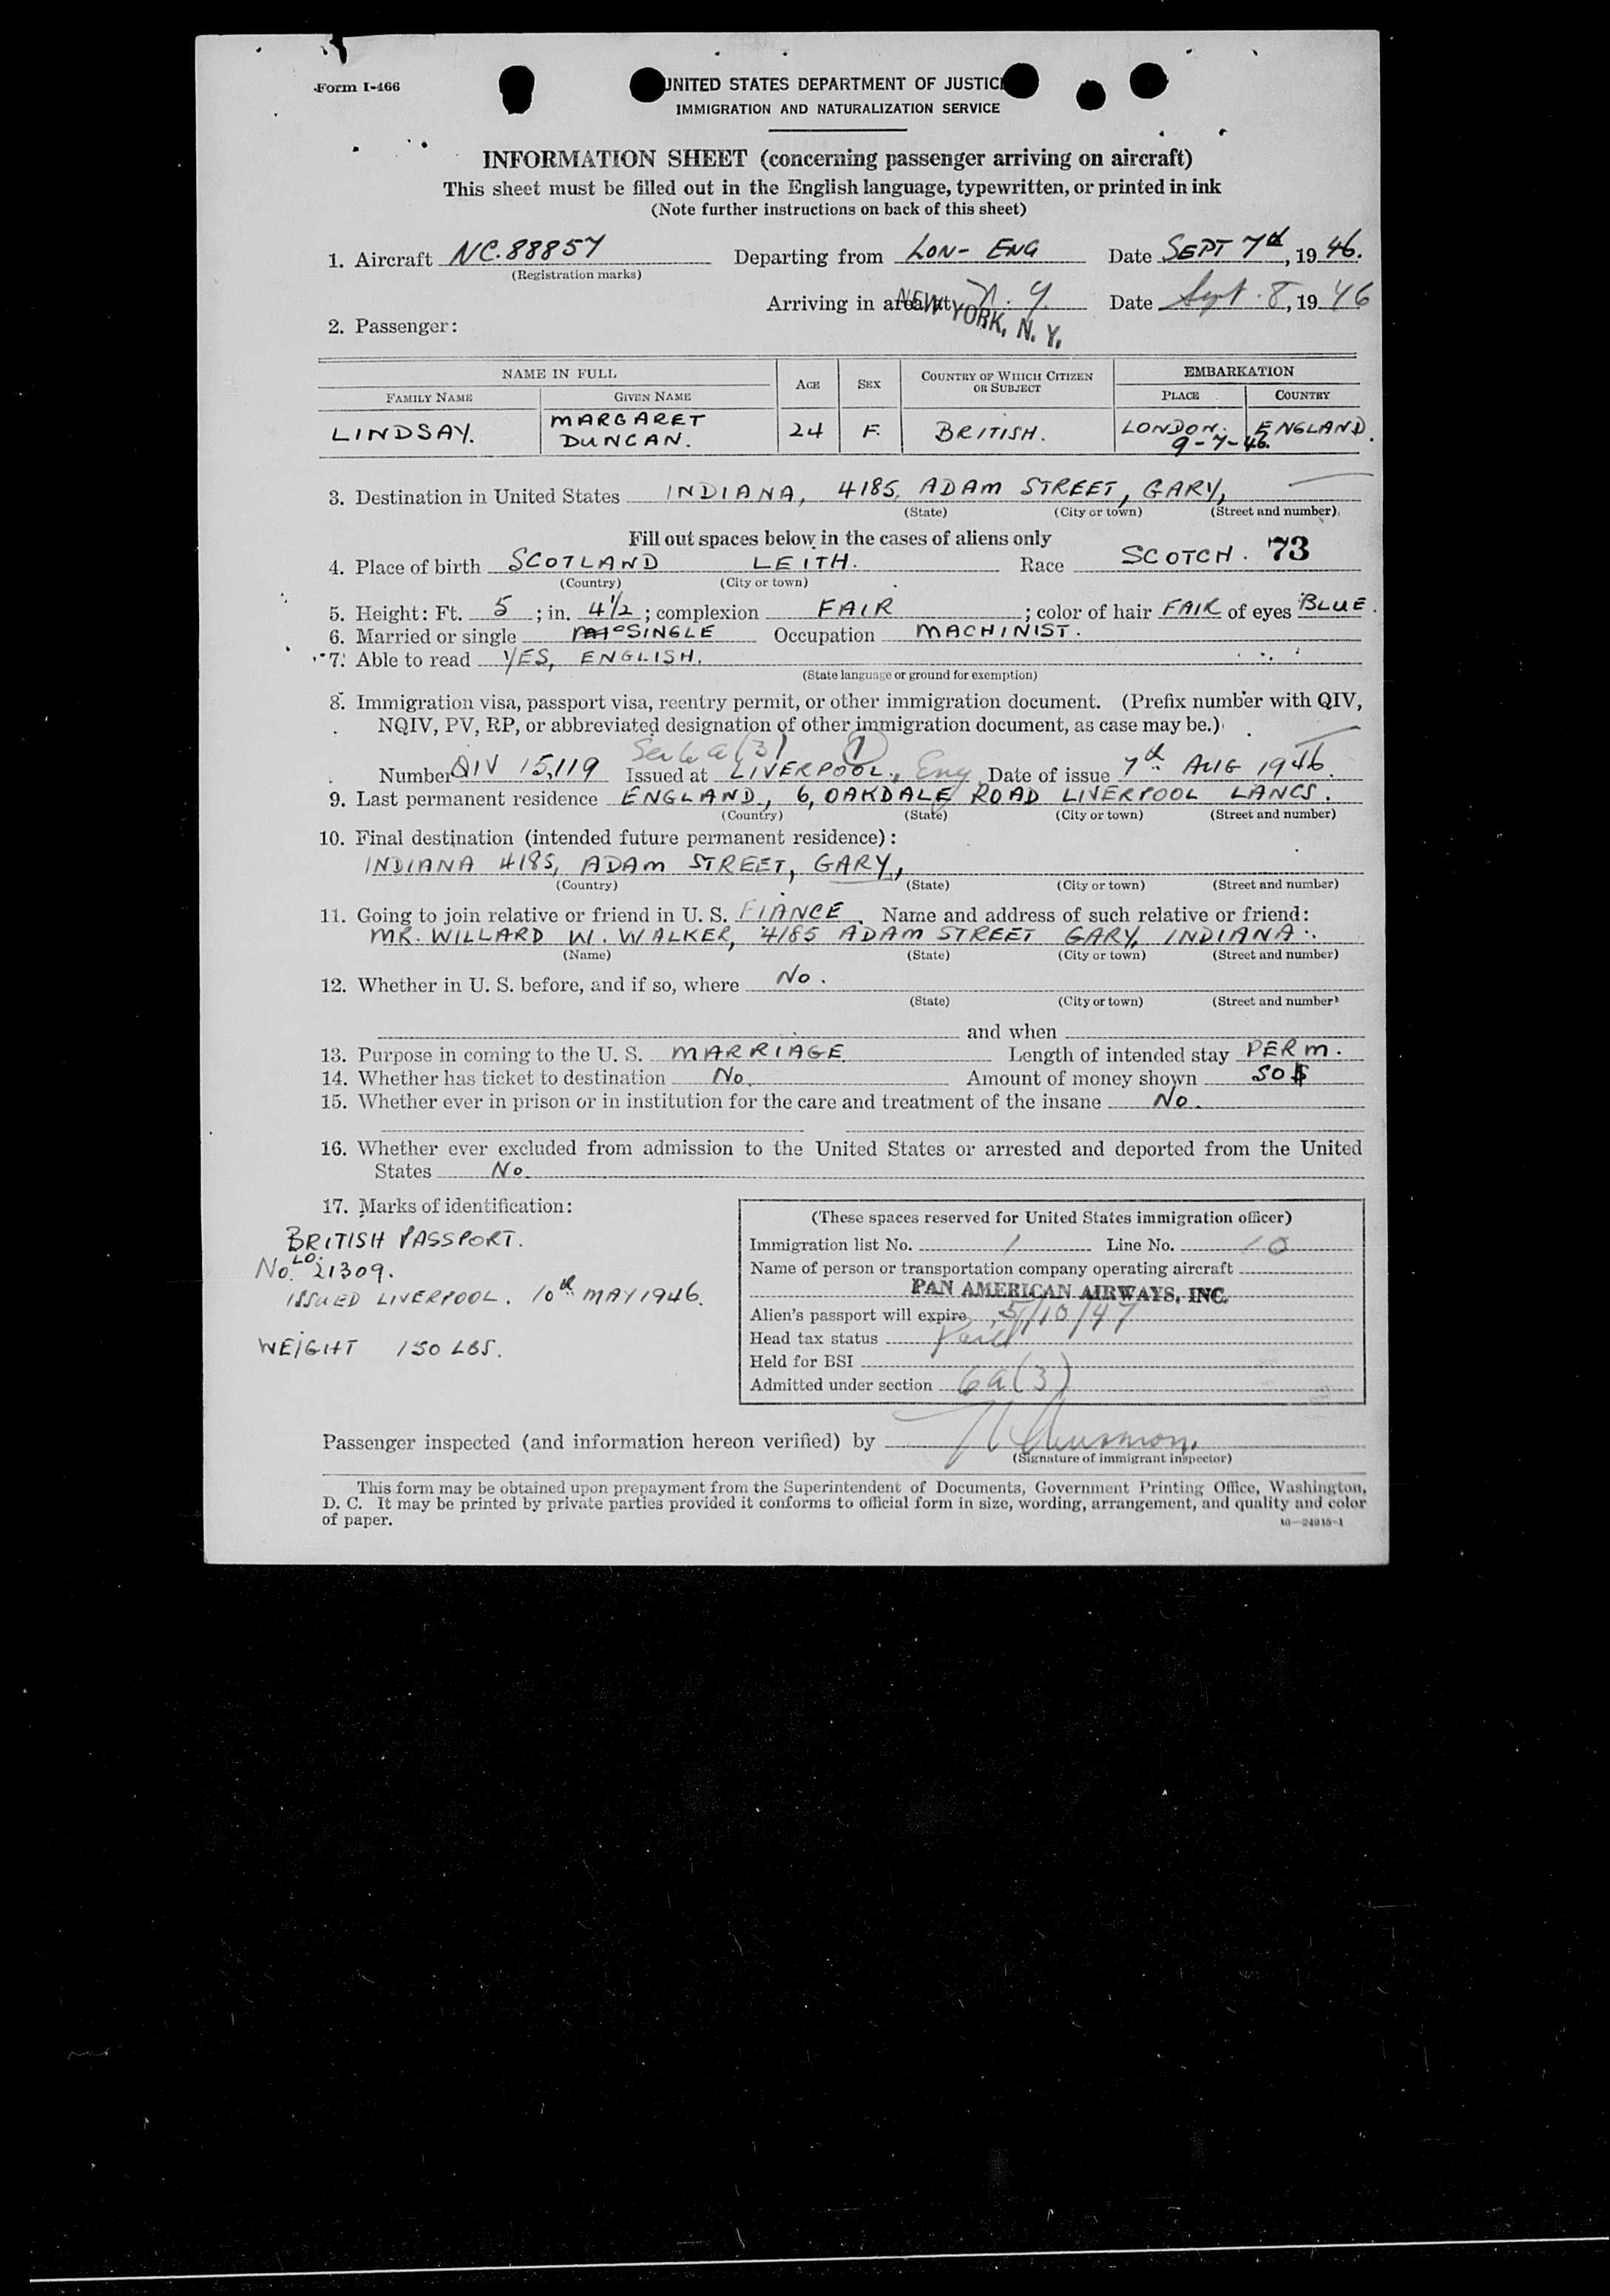 Form I-466
UNITED STATES DEPARTMENT OF JUSTICE
IMMIGRATION AND NATURALIZATION SERVICE
INFORMATION SHEET (concerning passenger arriving on aircraft)
This sheet must be filled out in the English language, typewritten, or printed in ink
(Note further instructions on back of this sheet)
1. Aircraft NC. 88857 Departing from LON- ENG Date SEPT 7th, 1946.
(Registration marks)
Arriving in area at N. Y. Date Sept. 8, 1946
NEW YORK, N. Y.
2. Passenger:
NAME IN FULL AGE SEX COUNTRY OF WHICH CITIZEN OR SUBJECT EMBARKATION
FAMILY NAME GIVEN NAME PLACE COUNTRY
LINDSAY. MARGARET DUNCAN. 24 F. BRITISH. LONDON. ENGLAND.
9-7-46.
3. Destination in United States INDIANA, 4185, ADAM STREET, GARY,
(State) (City or town) (Street and number)
Fill out spaces below in the cases of aliens only
4. Place of birth SCOTLAND LEITH. Race SCOTCH. 73
(Country) (City or town)
5. Height: Ft. 5; in. 4½; complexion FAIR; color of hair FAIR of eyes BLUE.
6. Married or single SINGLE Occupation MACHINIST.
7. Able to read YES, ENGLISH.
(State language or ground for exemption)
8. Immigration visa, passport visa, reentry permit, or other immigration document. (Prefix number with QIV,
NQIV, PV, RP, or abbreviated designation of other immigration document, as case may be.)
6a(3) 1
Number QIV 15,119 Issued at LIVERPOOL, Eng Date of issue 7th AUG 1946.
9. Last permanent residence ENGLAND, 6, OAKDALE ROAD LIVERPOOL LANCS.
(Country) (State) (City or town) (Street and number)
10. Final destination (intended future permanent residence):
INDIANA 4185, ADAM STREET, GARY,
(Country) (State) (City or town) (Street and number)
11. Going to join relative or friend in U. S. FIANCE. Name and address of such relative or friend:
MR. WILLARD W. WALKER, 4185 ADAM STREET GARY, INDIANA.
(Name) (State) (City or town) (Street and number)
12. Whether in U. S. before, and if so, where No.
(State) (City or town) (Street and number)
and when
13. Purpose in coming to the U. S. MARRIAGE. Length of intended stay PERM.
14. Whether has ticket to destination No. Amount of money shown 50 $
15. Whether ever in prison or in institution for the care and treatment of the insane No.
16. Whether ever excluded from admission to the United States or arrested and deported from the United
States No.
17. Marks of identification:
BRITISH PASSPORT.
No. LO. 21309.
ISSUED LIVERPOOL. 10th MAY 1946.
WEIGHT 150 LBS.
(These spaces reserved for United States immigration officer)
Immigration list No. 1 Line No. 10
Name of person or transportation company operating aircraft
PAN AMERICAN AIRWAYS, INC.
Alien's passport will expire 5/10/47
Head tax status Paid
Held for BSI
Admitted under section 6a(3)
Passenger inspected (and information hereon verified) by
(Signature of immigrant inspector)
This form may be obtained upon prepayment from the Superintendent of Documents, Government Printing Office, Washington,
D. C. It may be printed by private parties provided it conforms to official form in size, wording, arrangement, and quality and color
of paper.